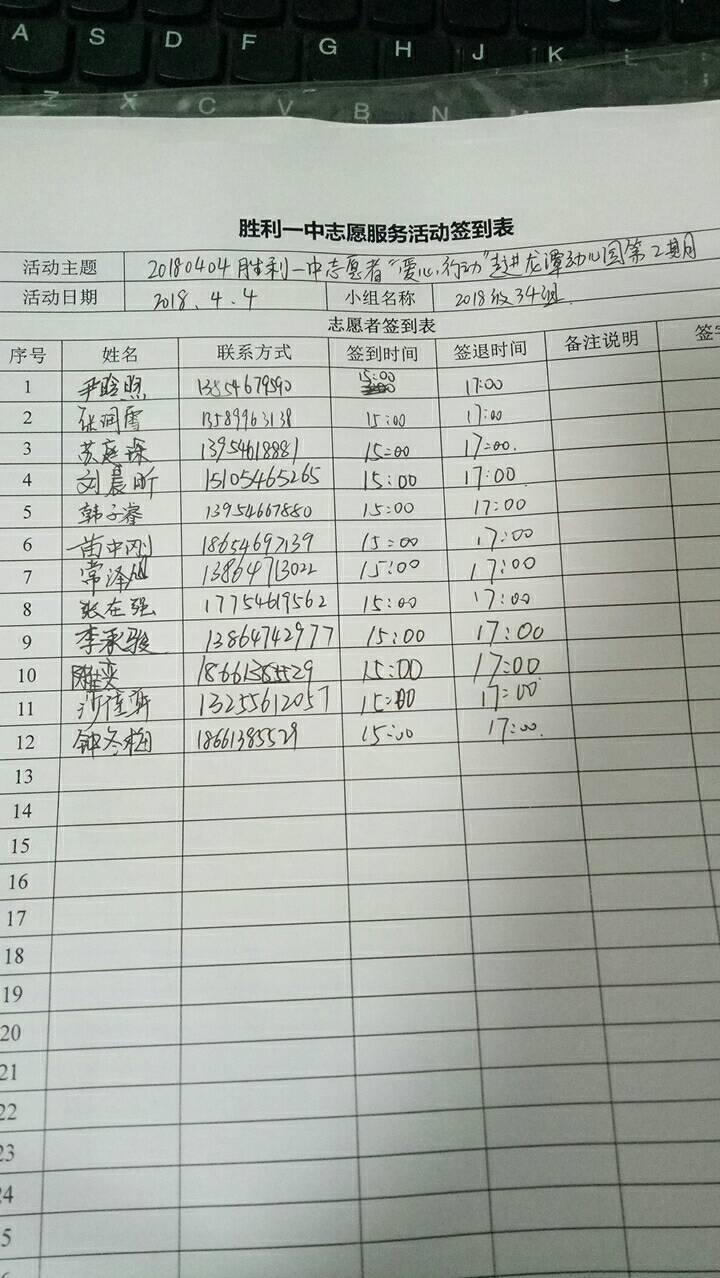 A S D F G H J K L
Z X C V B N
胜利一中志愿服务活动签到表
活动主题 20180404胜利一中志愿者“爱心行动”走进龙潭幼儿园第2期
活动日期 2018.4.4 小组名称 2018级34组
志愿者签到表
序号 姓名 联系方式 签到时间 签退时间 备注说明 签字
1 尹晗照 13854679590 15:00 17:00
2 张润雪 13589963138 15:00 17:00
3 苏庭琛 13954618881 15:00 17:00.
4 刘晨昕 15105465265 15:00 17:00
5 韩子睿 13954667880 15:00 17:00
6 苗中刚 18654697139 15:00 17:00
7 常泽 13864713022 15:00 17:00
8 张在强 17754619562 15:00 17:00
9 李承骏 13864742977 15:00 17:00
10 陈奕 18661385529 15:00 17:00
11 沙佳 13255612057 15:00 17:00
12 钟冬梅 18661385529 15:00 17:00.
13
14
15
16
17
18
19
20
21
22
23
24
5